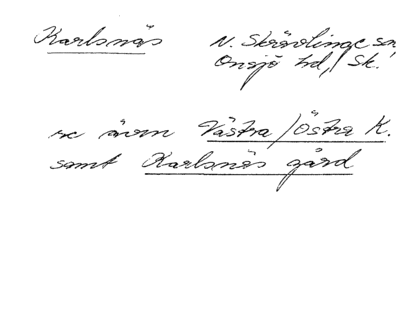 Karlsnäs N. Skrävlinge sn
Onsjö hd, Sk.
se även Västra/Östra K.
samt Karlsnäs gård